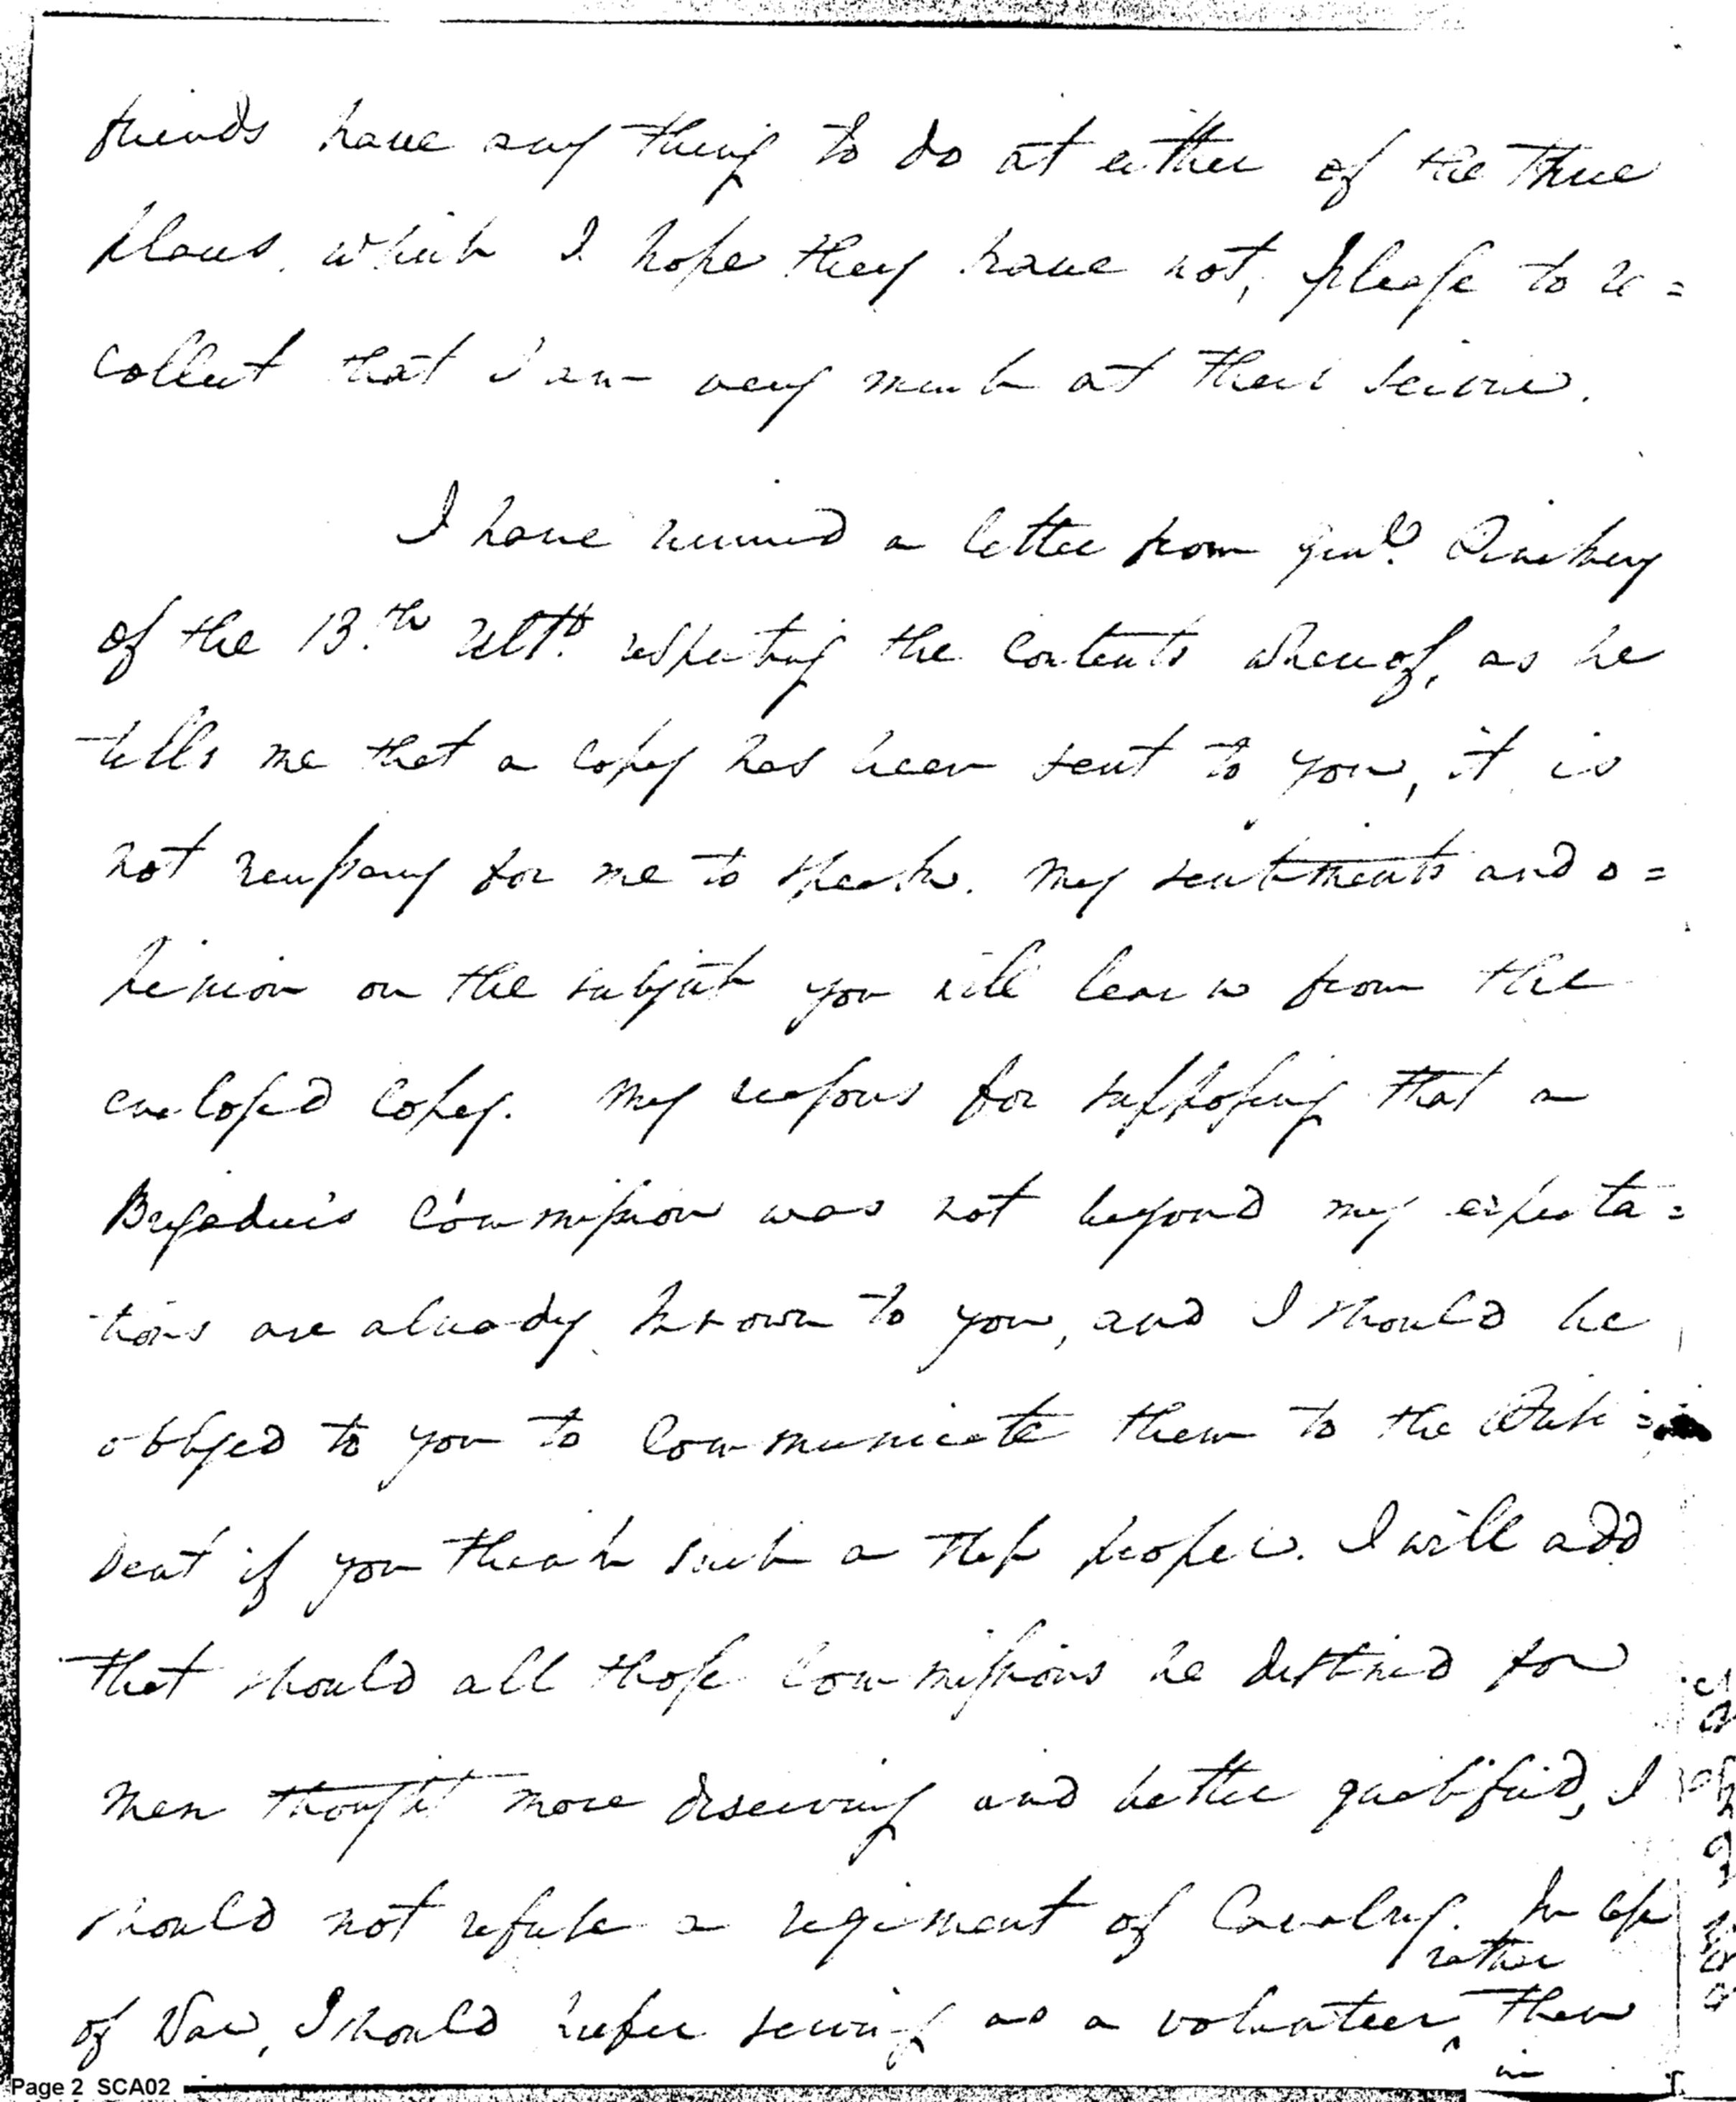 friends have any thing to do at either of the three
places, which I hope they have not, please to re=
collect that I am very much at their service.
I have received a letter from Genl. Pinckney
of the 13.th Ulto. respecting the contents whereof, as he
tells me that a copy has been sent to you, it is
not necessary for me to speak. My sentiments and o=
pinion on the subject you will learn from the
enclosed copy. My reasons for supposing that a
Brigadier's Commission was not beyond my expecta=
tions are already known to you, and I should be
obliged to you to communicate them to the Presi=
dent if you think such a step proper. I will add
that should all those Commissions be destined for
men thought more deserving and better qualified, I
should not refuse a regiment of Cavalry. In case
rather
of War, I should prefer serving as a volunteer ^ than
in
Page 2 SCA02